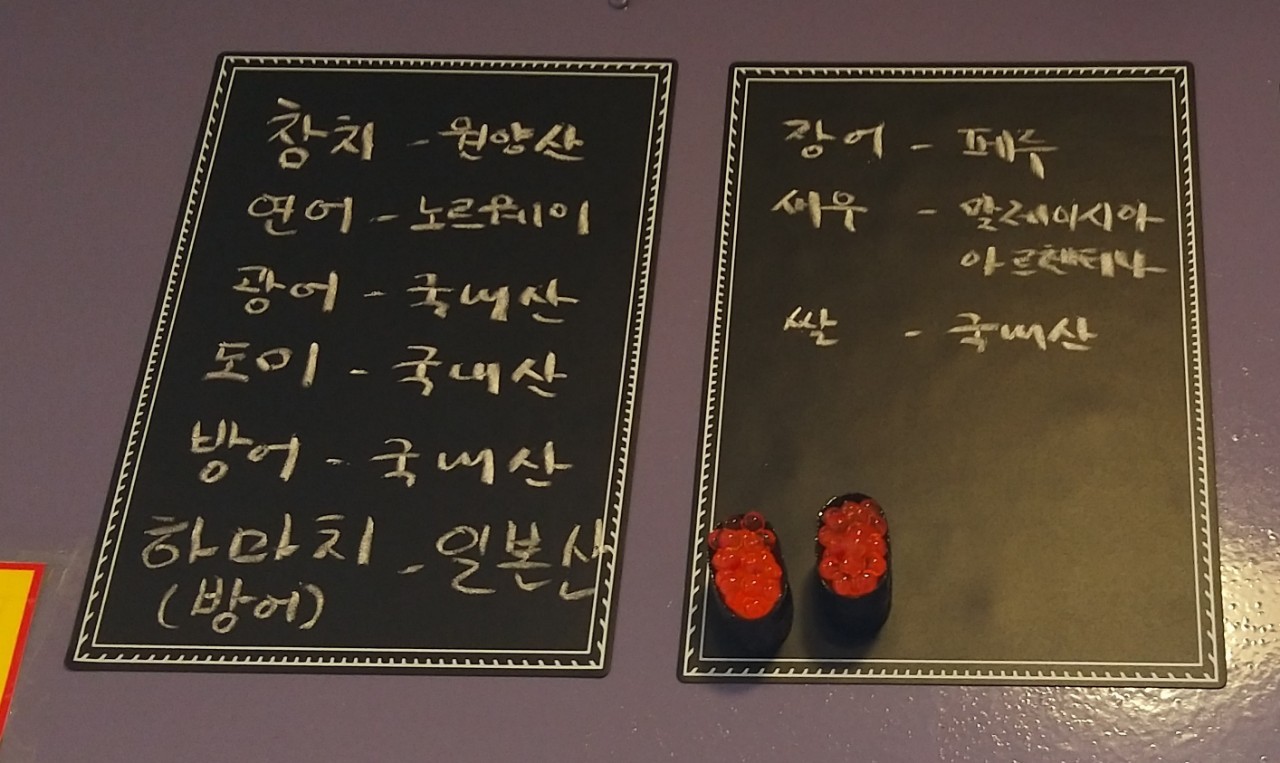 참치 - 원양산
연어 - 노르웨이
광어 - 국내산
도미 - 국내산
방어 - 국내산
하마치 - 일본산
(방어)
장어 - 페루
새우 - 말레이시아
아르헨티나
쌀 - 국내산